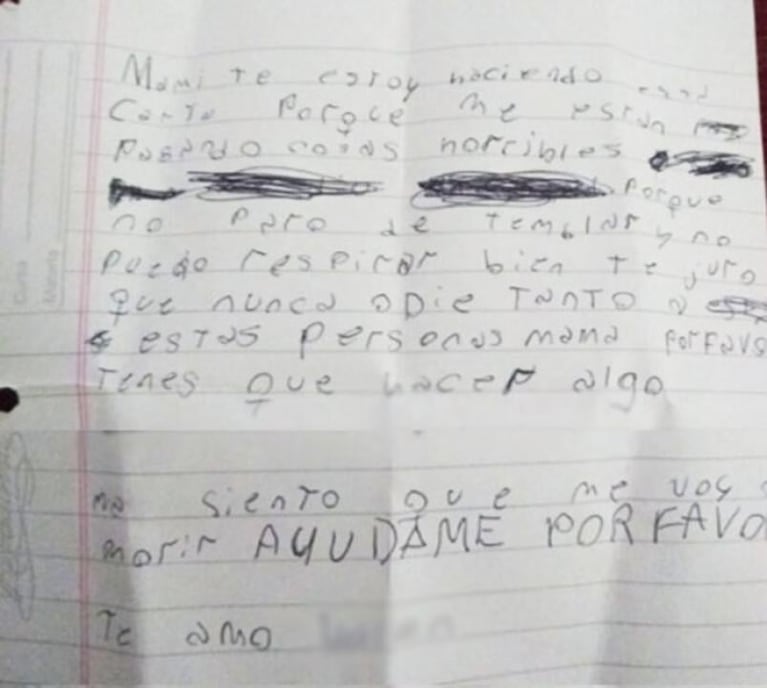 Mami te estoy haciendo esta
Carta Porque me estan
Pasando cosas horribles
Porque
no paro de temblar y no
Puedo respirar bien te juro
que nunca odie TANTO a
estas Personas mama Porfavo
Tenes que hacer algo
me siento que me voy a
morir AYUDAME POR FAVO
Te amo